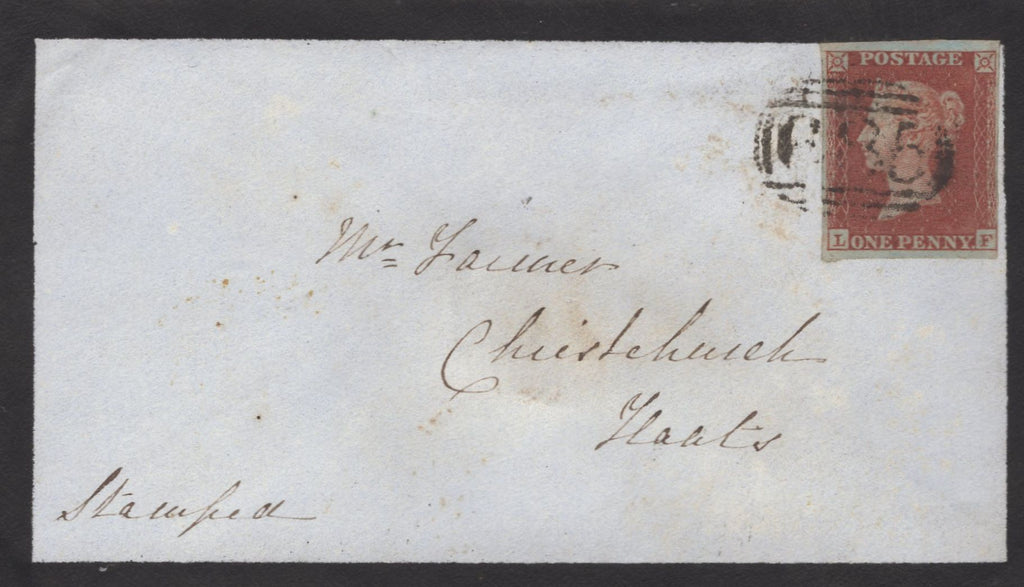 POSTAGE
I ONE PENNY F
Mr Farmer
Christchurch
Hants
Stamped